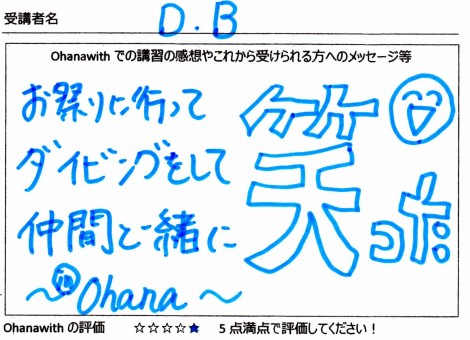 受講者名 D.B
Ohanawith での講習の感想やこれから受けられる方へのメッセージ等
お祭りに行って
ダイビングをして
仲間と一緒に
～ in Ohana ～
笑
Ohanawith の評価 ☆☆☆☆★ 5点満点で評価してください！